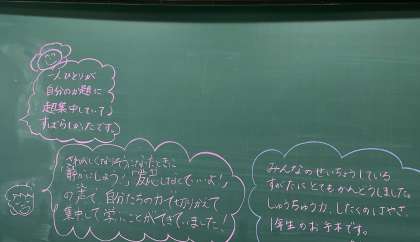 一人ひとりが
自分のか題に
超集中していて
すばらしかったです。
さわがしくなりそうになったときに
静かにしよう!」「反応しなくていいよ!」
の声で、自分たちの力でせいりかえて
集中して学ぶことができていました!
みんなのせいちょうしている
すがたにとてもかんどうしました。
しゅうちゅう力、したくのはやさ、
1年生のお手本です。